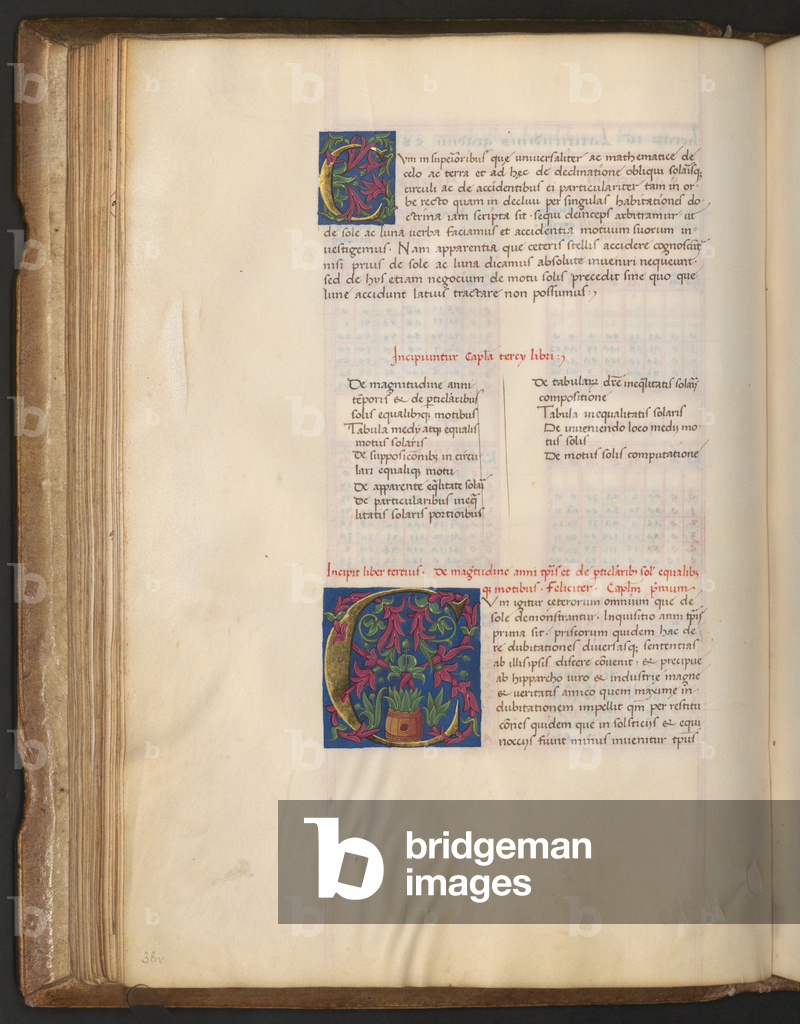 Cum in superioribus que universaliter ac mathematice de
celo ac terra et ad hec de declinatione obliqui solarisq;
circuli ac de accidentibus ei particulariter tam in or
be recto quam in declivi per singulas habitationes do
ctrina iam scripta sit · sequi deinceps arbitramur · ut
de sole ac luna verba faciamus et accidentia motuum suorum in
vestigemus · Nam apparentia que ceteris stellis accidere cognoscūt
nisi prius de sole ac luna dicamus absolute inveniri nequeunt ·
sed de hys etiam negocium de motu solis precedit sine quo que
lune accidunt latius tractare non possumus :,
Incipiuntur Capl̄a tercy libri :,
De magnitudine anni
tēporis & de pticlāribus
solis equalibq; motibus
Tabula medy atq; equalis
motus solaris
De suppositiōnib; in circu
lari equaliq; motu
De apparente eq̄litate solar̄
De particularibus ineq̄
litatis solaris portioibus
De tabular; dr̄e ineq̄litatis solar̄
compositione
Tabula inequalitatis solaris
De inveniendo loco medy mo
tus solis
De motus solis computatione
Incipit liber tercius · De magtudine anni tp̄is et de pticlārib; sol' equalib;
q; motibus · Feliciter · Caplm̄ pr̄mum ·
Cum igitur ceterorum omnium que de
sole demonstrantur · Inquisitio anni tp̄is
prima sit · priscorum quidem hac de
re dubitationes diversasq; sententias
ab illis ipsis discere cōvenit · & precipue
ab hipparcho viro & industrie magne
& veritatis amico quem maxime in
dubitationem impellit qm̄ per restitu
cōnes quidem que in solsticijs & equi
noccijs fiunt minus invenitur tp̄us
38v
bridgeman
images